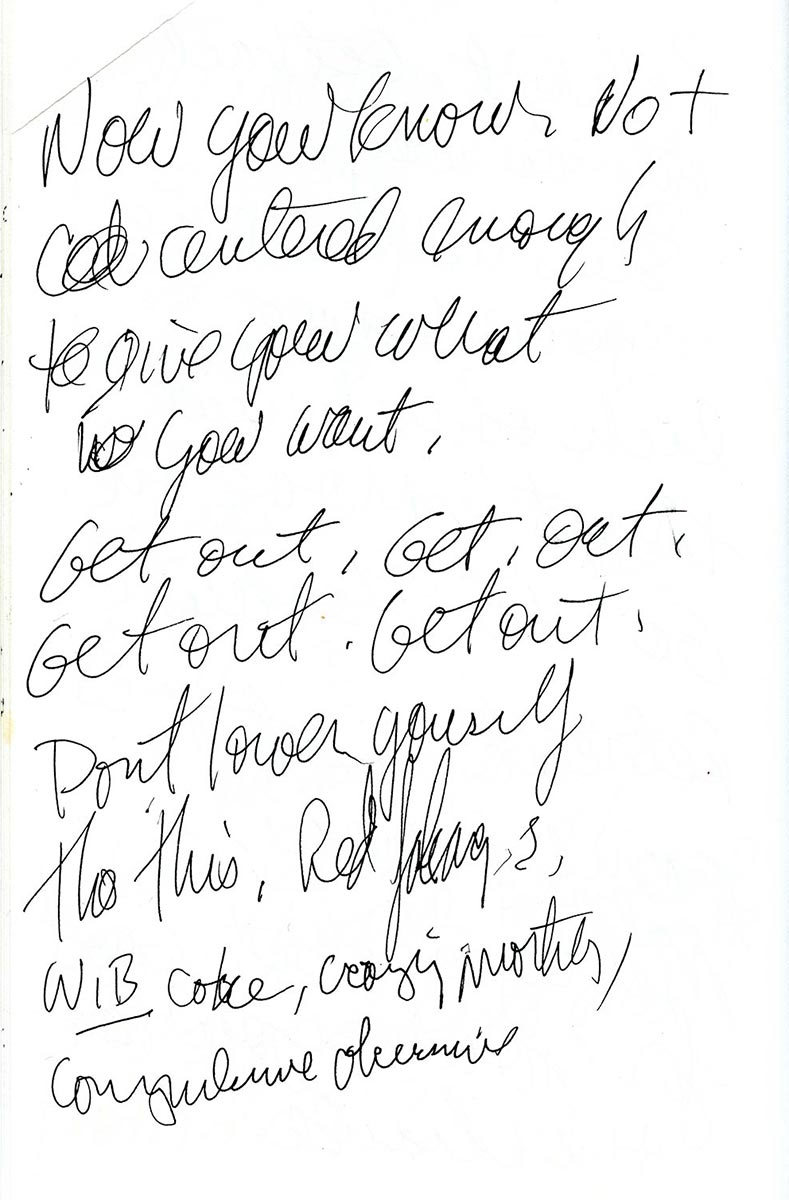 Now you know. Not
centered enough
to give you what
you want.
Get out, Get, out,
Get out. Get out,
Don't lower yourself
tho this. Red flags,
WIB coke, crazy mother,
Compulsive obsessive